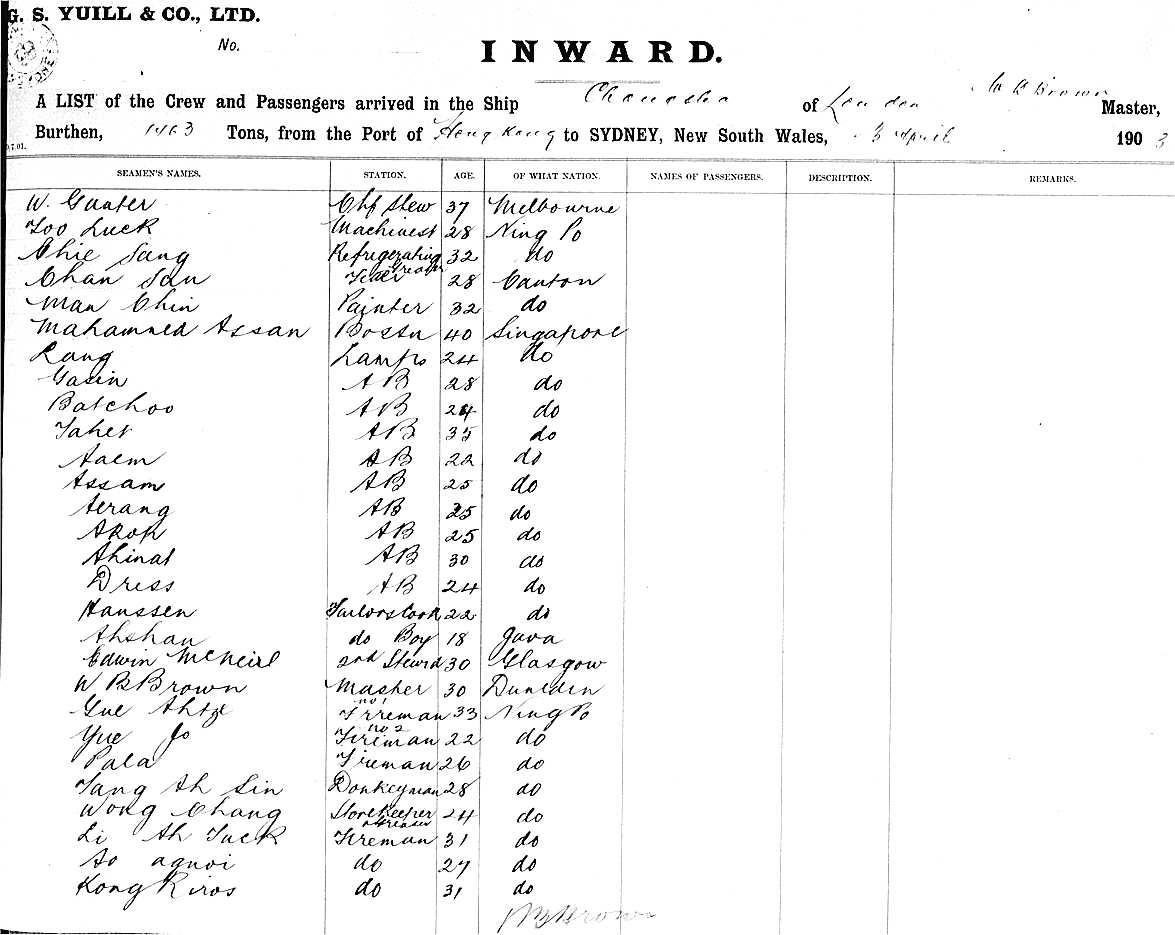 G. S. YUILL & CO., LTD.
No.
INWARD.
A LIST of the Crew and Passengers arrived in the Ship Changsha of London W B Brown Master,
Burthen, 1463 Tons, from the Port of Hong Kong to SYDNEY, New South Wales, 3 April 1903
SEAMEN'S NAMES. STATION. AGE. OF WHAT NATION. NAMES OF PASSENGERS. DESCRIPTION. REMARKS.
W. Gunter Chf Stew 37 Melbourne
Too Luck Machinest 28 Ning Po
Chie Sang Refrigerating Greaser 32 do
Chan San 28 Canton
Man Chin Painter 32 do
Mahammed Assan Bossn 40 Singapore
Lamps 24 do
Gasin AB 28 do
Batchoo AB 24 do
Taher AB 35 do
AB 22 do
Assam AB 25 do
Aerang AB 25 do
Akop AB 25 do
Ahinat AB 30 do
Driss AB 24 do
Hanssen Sailors Cook 22 do
Ahshan do Boy 18 Java
Edwin McNeil 2nd Stewrd 30 Glasgow
W B Brown Master 30 Dunedin
no 1 Fireman 33 Ning Po
Yue Jo no 2 Fireman 22 do
Pala Fireman 26 do
Tang Ah Sin Donkeyman 28 do
Wong Chang Storekeeper & Greaser 24 do
Li Ah Tuck Fireman 31 do
do 27 do
Kong do 31 do
W B Brown